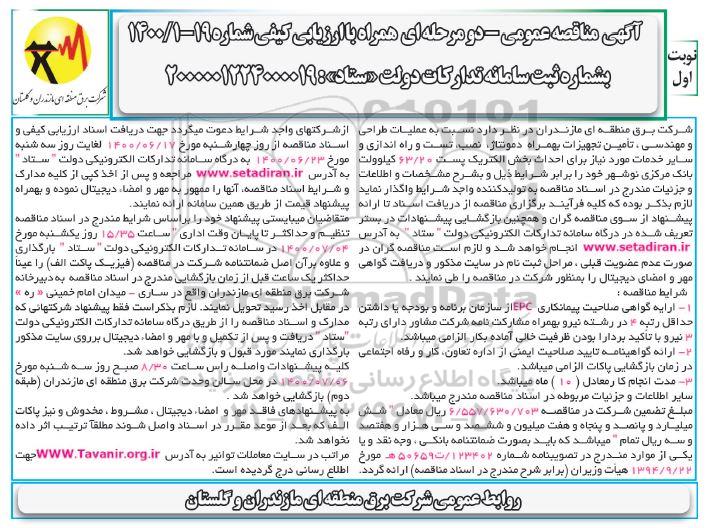 آگهی مناقصه عمومی - دو مرحله ای همراه با ارزیابی کیفی شماره ۱۹-۱۴۰۰/۱
بشماره ثبت سامانه تدارکات دولت «ستاد»: ۲۰۰۰۰۰۱۲۲۴۰۰۰۰۱۹
نوبت
اول
شرکت برق منطقه ای مازندران و گلستان
شرکت برق منطقه ای مازندران در نظر دارد نسبت به عملیات طراحی
و مهندسی ، تأمین تجهیزات بهمراه دمونتاژ نصب، تست و راه اندازی و
سایر خدمات مورد نیاز برای احداث بخش الکتریک پست ۶۳/۲۰ کیلوولت
بانک مرکزی نوشهر خود را برابر شرایط ذیل و بشرح مشخصات و اطلاعات
و جزئیات مندرج در اسناد مناقصه به تولیدکننده واجد شرایط واگذار نماید
لازم بذکر بوده که کلیه فرآیند برگزاری مناقصه از دریافت اسناد تا ارائه
پیشنهاد از سوی مناقصه گران و همچنین بازگشایی پیشنهادات در بستر
تعریف شده در درگاه تدارکات الکترونیکی دولت " ستاد " به آدرس
www.setadiran.ir انجام خواهد شد و لازم است مناقصه گران در
صورت عدم عضویت قبلی ، مراحل ثبت نام در سایت مذکور و دریافت گواهی
مهر و امضای دیجیتال را بمنظور شرکت در مناقصه را طی نمایند .
شرایط مناقصه :
۱- ارایه گواهی صلاحیت پیمانکاری EPC از سازمان برنامه و بودجه یا داشتن
حداقل رتبه ۴ در رشته نیرو بهمراه مشارکت نامه شرکت مشاور دارای رتبه
۳ نیرو با تأکید بر دارا بودن ظرفیت خالی آماده بکار الزامی میباشد.
۲- ارائه گواهینامه تایید صلاحیت ایمنی از اداره تعاون، کار و رفاه اجتماعی
در زمان بازگشایی پاکات الزامی میباشد.
۳- مدت انجام کار معادل ( ۱۰ ) ماه میباشد.
سایر اطلاعات و جزئیات مربوطه در اسناد مناقصه مندرج میباشد.
مبلغ تضمین شرکت در مناقصه ۶/۵۵۷/۶۳۰/۷۰۳ ریال معادل " شش
میلیارد و پانصد و پنجاه و هفت میلیون و ششصد و سی هزار و هفتصد
و سه ریال تمام " میباشد که باید بصورت ضمانتنامه بانکی ، وجه نقد و یا
یکی از موارد مندرج در تصویبنامه شماره ۱۲۳۴۰۲/ت۵۰۶۵۹ هـ مورخ
۱۳۹۴/۹/۲۲ هیأت وزیران (برابر شرح مندرج در اسناد مناقصه) ارائه گردد.
از شرکتهای واجد شرایط دعوت میگردد جهت دریافت اسناد ارزیابی کیفی و
اسناد مناقصه از روز چهارشنبه مورخ ۱۴۰۰/۰۶/۱۷ لغایت روز سه شنبه
مورخ ۱۴۰۰/۰۶/۲۳ به درگاه سامانه تدارکات الکترونیکی دولت " ستاد "
به آدرس www.setadiran.ir مراجعه و پس از اخذ کپی از کلیه مدارک
و شرایط اسناد مناقصه، آنها را ممهور به مهر و امضاء دیجیتال نموده و بهمراه
پیشنهاد قیمت از طریق همین سامانه ارائه نمایند.
متقاضیان میبایستی پیشنهاد خود را براساس شرایط مندرج در اسناد مناقصه
تنظیم و حداکثر تا پایان وقت اداری " ساعت ۱۵/۳۵ روز یکشنبه مورخ
۱۴۰۰/۰۷/۰۴ در سامانه تدارکات الکترونیکی دولت " ستاد " بارگذاری
و علاوه بر آن اصل ضمانتنامه شرکت در مناقصه (فیزیک پاکت الف) را عیناً
حداکثر یک ساعت قبل از زمان بازگشایی مندرج در اسناد مناقصه به دبیرخانه
شرکت برق منطقه ای مازندران واقع در ساری - میدان امام خمینی « ره »
در مقابل اخذ رسید تحویل نمایند. لازم بذکر است فقط پیشنهاد شرکتهایی که
مدارک و اسناد مناقصه را از طریق درگاه سامانه تدارکات الکترونیکی دولت
"ستاد" دریافت و پس از تکمیل و با مهر و امضاء دیجیتال بر روی سایت مذکور
بارگذاری نمایند مورد قبول و بازگشایی خواهد شد.
کلیه پیشنهادات واصله راس ساعت ۸/۳۰ صبح روز سه شنبه مورخ
۱۴۰۰/۰۷/۰۶ در محل سالن وحدت شرکت برق منطقه ای مازندران (طبقه
دوم) بازگشایی خواهد شد .
به پیشنهادهای فاقد مهر و امضاء دیجیتال ، مشروط ، مخدوش و نیز پاکات
الف که بعد از موعد مقرر در اسناد و اصل شوند مطلقاً ترتیب اثر داده
نخواهد شد.
مراتب در سایت معاملات توانیر به آدرس WWW.Tavanir.org.ir جهت
اطلاع رسانی درج گردیده است.
روابط عمومی شرکت برق منطقه ای مازندران و گلستان